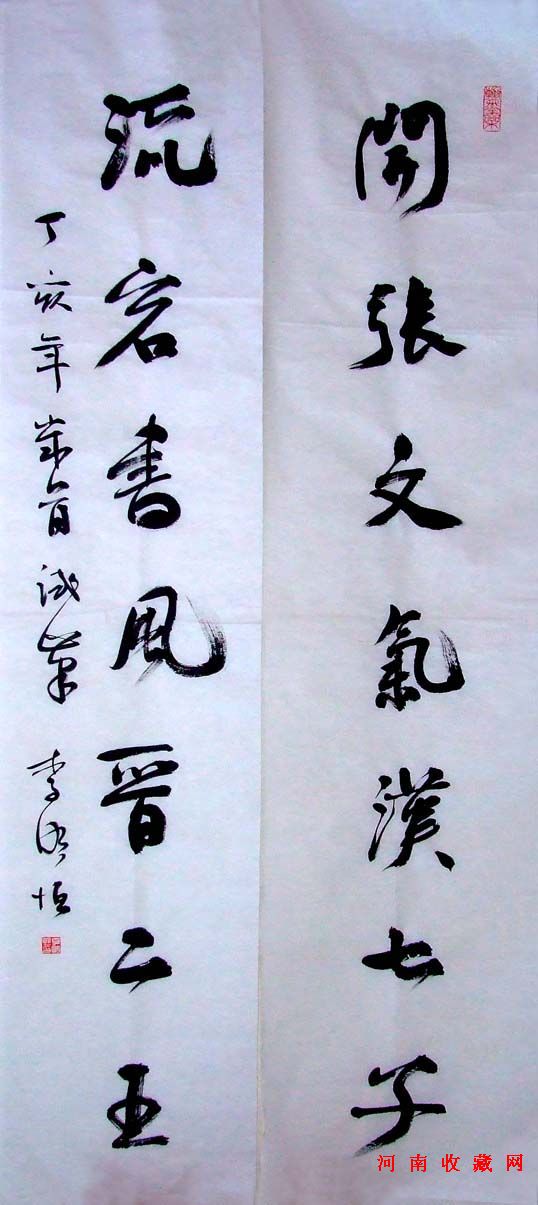 開張文氣漢七子
流宕書風晉二王
丁亥年歲首試筆 李恒
河南收藏网